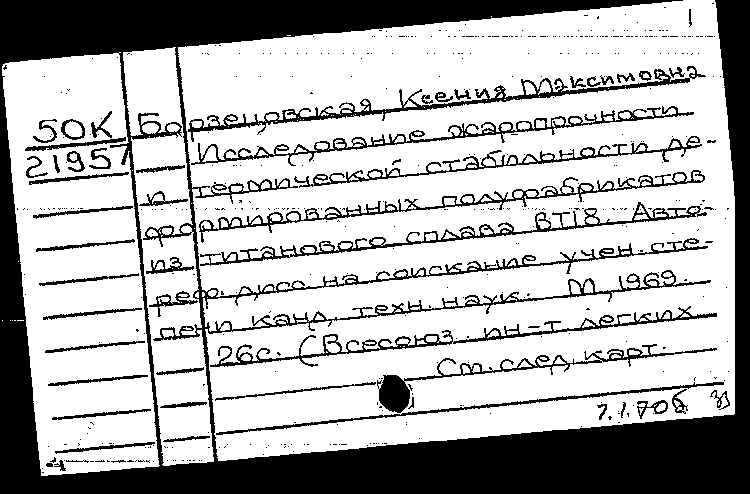 1
50К Борзецовская, Ксения Максимовна
21957 Исследование жаропрочности
и термической стабильности де-
формированных полуфабрикатов
из титанового сплава ВТ18. Авто-
реф. дисс. на соискание учен. сте-
пени канд. техн. наук. М, 1969.
26с. (Всесоюз. ин-т легких
См. след. карт.